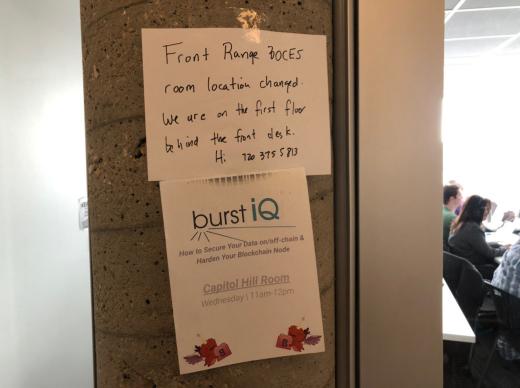 Front Range BOCES
room location changed.
We are on the first floor
behind the front desk.
Hi 720 375 5813
burst iQ
How to Secure Your Data on/off-chain &
Harden Your Blockchain Node
Capitol Hill Room
Wednesday | 11am-12pm